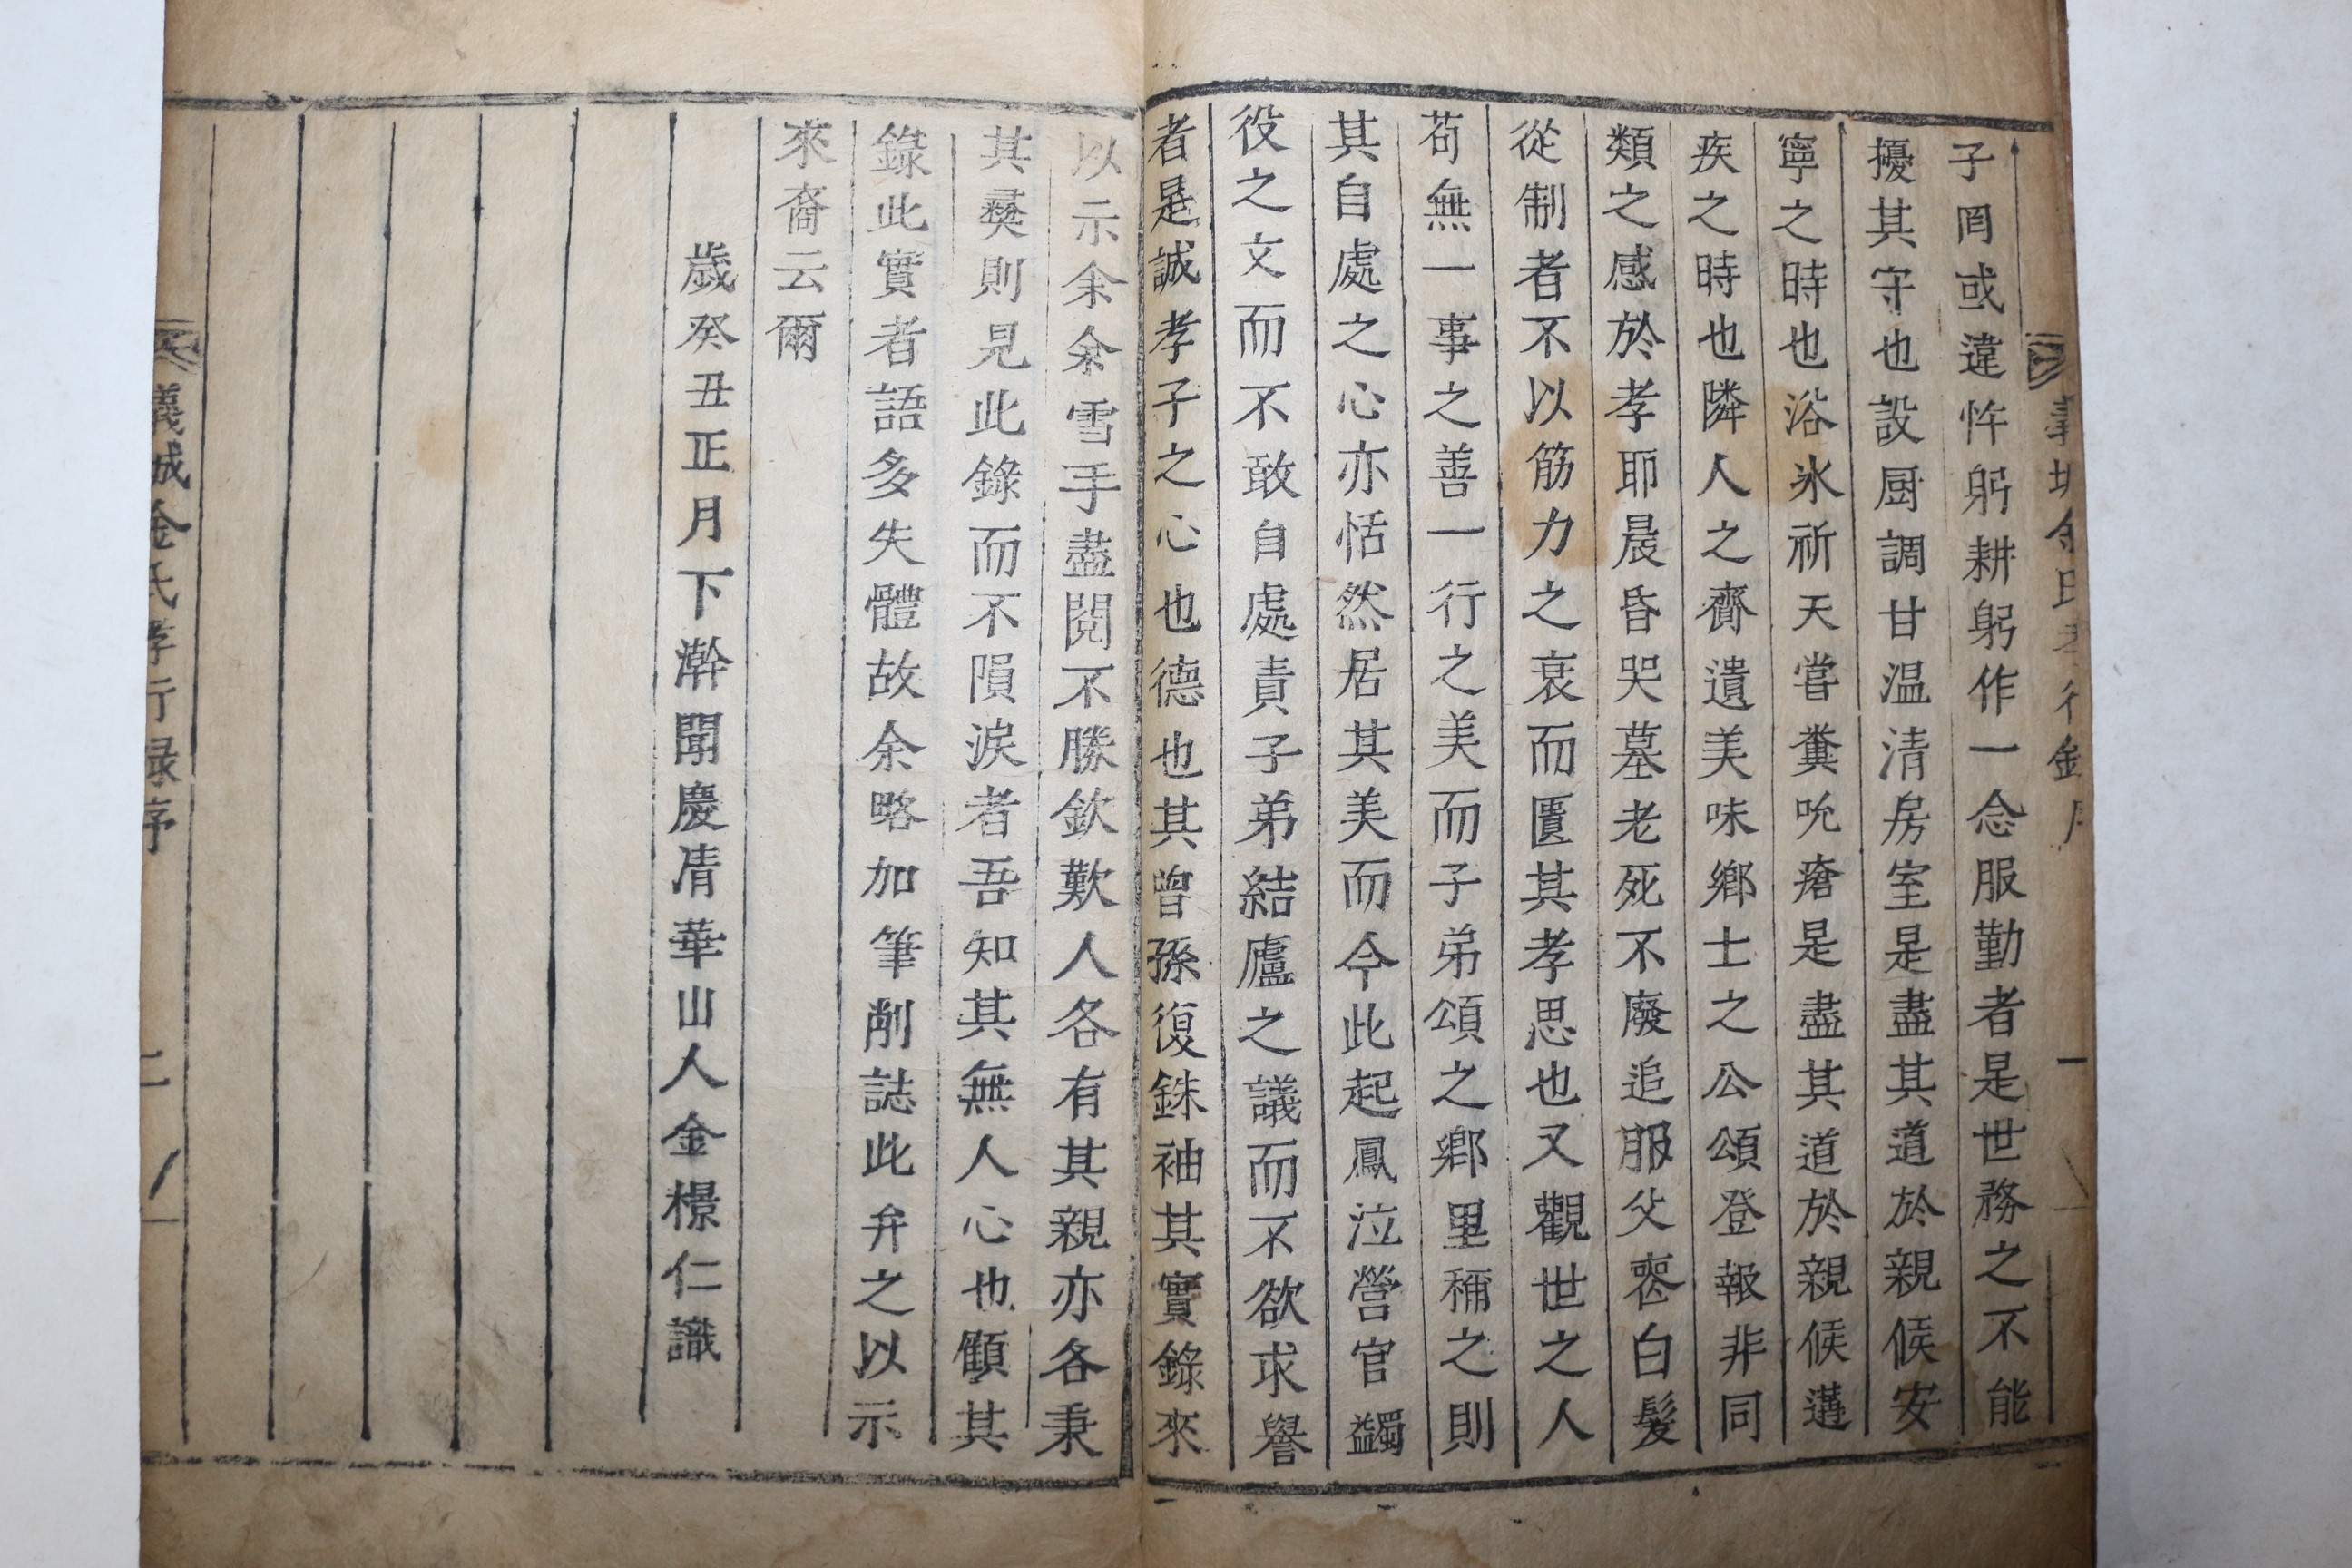 子罔或違忤躬耕躬作一念服勤者是世務之不能
擾其守也設厨調甘温清房室是盡其道於親候安
寧之時也浴氷祈天嘗糞吮瘡是盡其道於親候遘
疾之時也隣人之賷遺美味鄉士之公頌登報非同
類之感於孝耶晨昏哭墓老死不廢追服父喪白髮
從制者不以筋力之衰而匱其孝思也又觀世之人
苟無一事之善一行之美而子弟頌之鄉里稱之則
其自處之心亦恬然居其美而今此起鳳泣營官蠲
役之文而不敢自處責子弟結廬之議而不欲求譽
者是誠孝子之心也德也其曾孫復銖袖其實錄來
以示余余雪手盡閱不勝欽歎人各有其親亦各秉
其彜則見此錄而不隕淚者吾知其無人心也顧其
錄此實者語多失體故余略加筆削誌此弁之以示
來裔云爾
歲癸丑正月下澣聞慶凊華山人金㯳仁識
義城金氏孝行録序
二